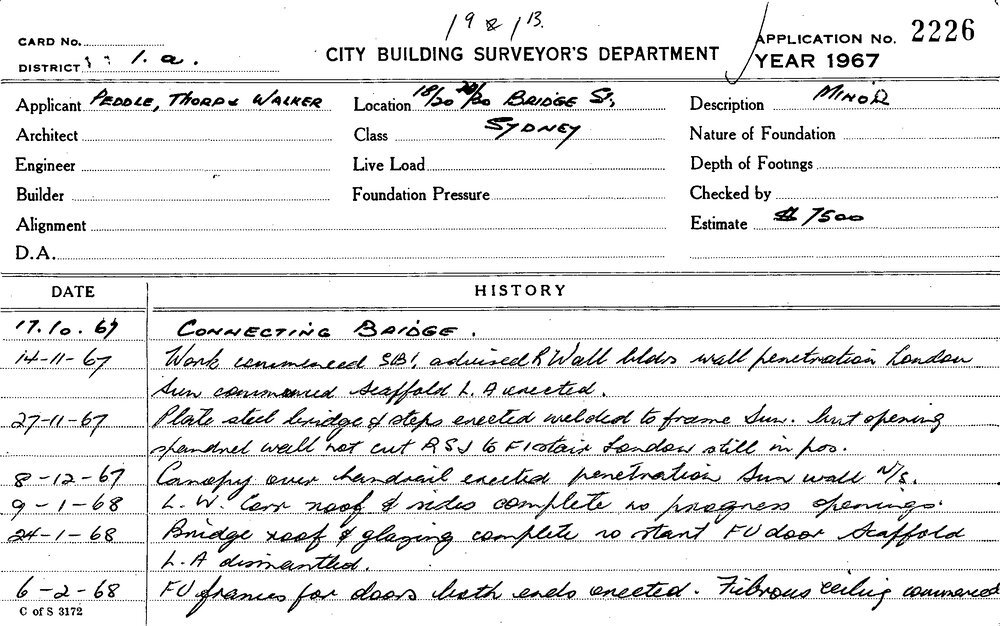 19 & 13.
CARD No.
DISTRICT 1.a.
CITY BUILDING SURVEYOR'S DEPARTMENT
APPLICATION No. 2226
YEAR 1967
Applicant PEDDLE, THORP & WALKER
Location 18/20 BRIDGE ST,
Description MINOR
Architect
Class SYDNEY
Nature of Foundation
Engineer
Live Load
Depth of Footings
Builder
Foundation Pressure
Checked by
Alignment
Estimate $ 7500
D.A.
DATE HISTORY
17.10.67 CONNECTING BRIDGE.
14-11-67 Work commenced SB! advised R Wall bldr wall penetration London
Sun commenced scaffold L.A erected.
27-11-67 Plate steel bridge & steps erected welded to frame Sun. but opening
spandrel wall not cut RSJ to F1 stair London still in pos.
8-12-67 Canopy over handrail erected penetration Sun wall N/S.
9-1-68 L.W. Conc roof & sides complete no progress openings.
24-1-68 Bridge roof & glazing complete no start FU door scaffold
L.A dismantled.
6-2-68 FU frames for doors both ends erected. Fibrous ceiling commenced
C of S 3172